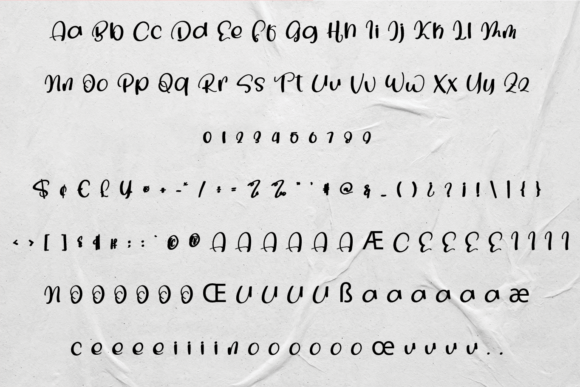 Aa Bb Cc Dd Ee Ff Gg Hh Ii Jj Kk Ll Mm
Nn Oo Pp Qq Rr Ss Tt Uu Vv Ww Xx Yy Zz
0 1 2 3 4 5 6 7 8 9
$ ¢ € £ ¥ • + - " / ÷ = @ & _ ( ) ¿ ? ¡ ! \ | { }
< > [ ] : : © ® A A A A A A Æ C E E E E I I I I
N O O O O O O Œ U U U U ß a a a a a a æ
c e e e e i i i i n o o o o o o œ u u u u . .